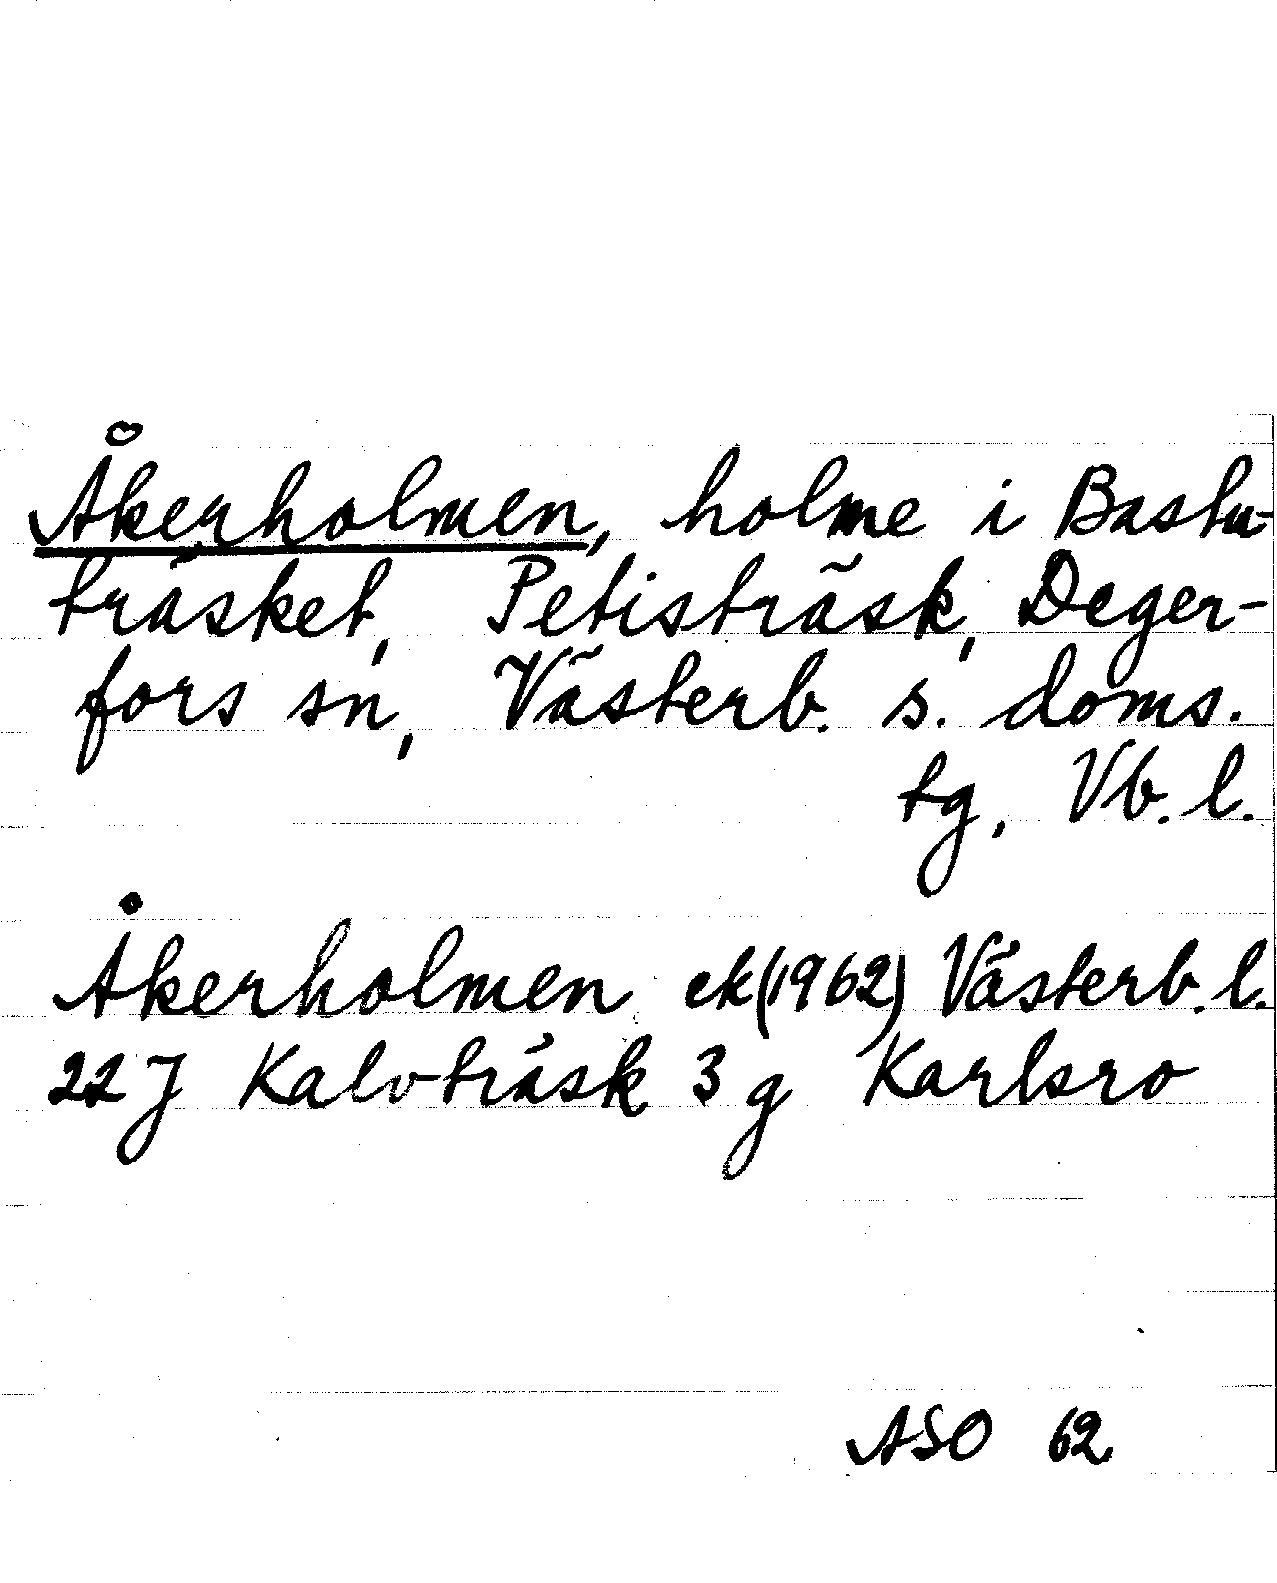 Åkerholmen, holme i Bastu-
träsket, Petisträsk, Deger-
fors sn, Västerb. s. doms.
tg, Vb. l.
Åkerholmen ek(1962) Västerb. l.
22J Kalvträsk 3 g Karlsro
ASO 62